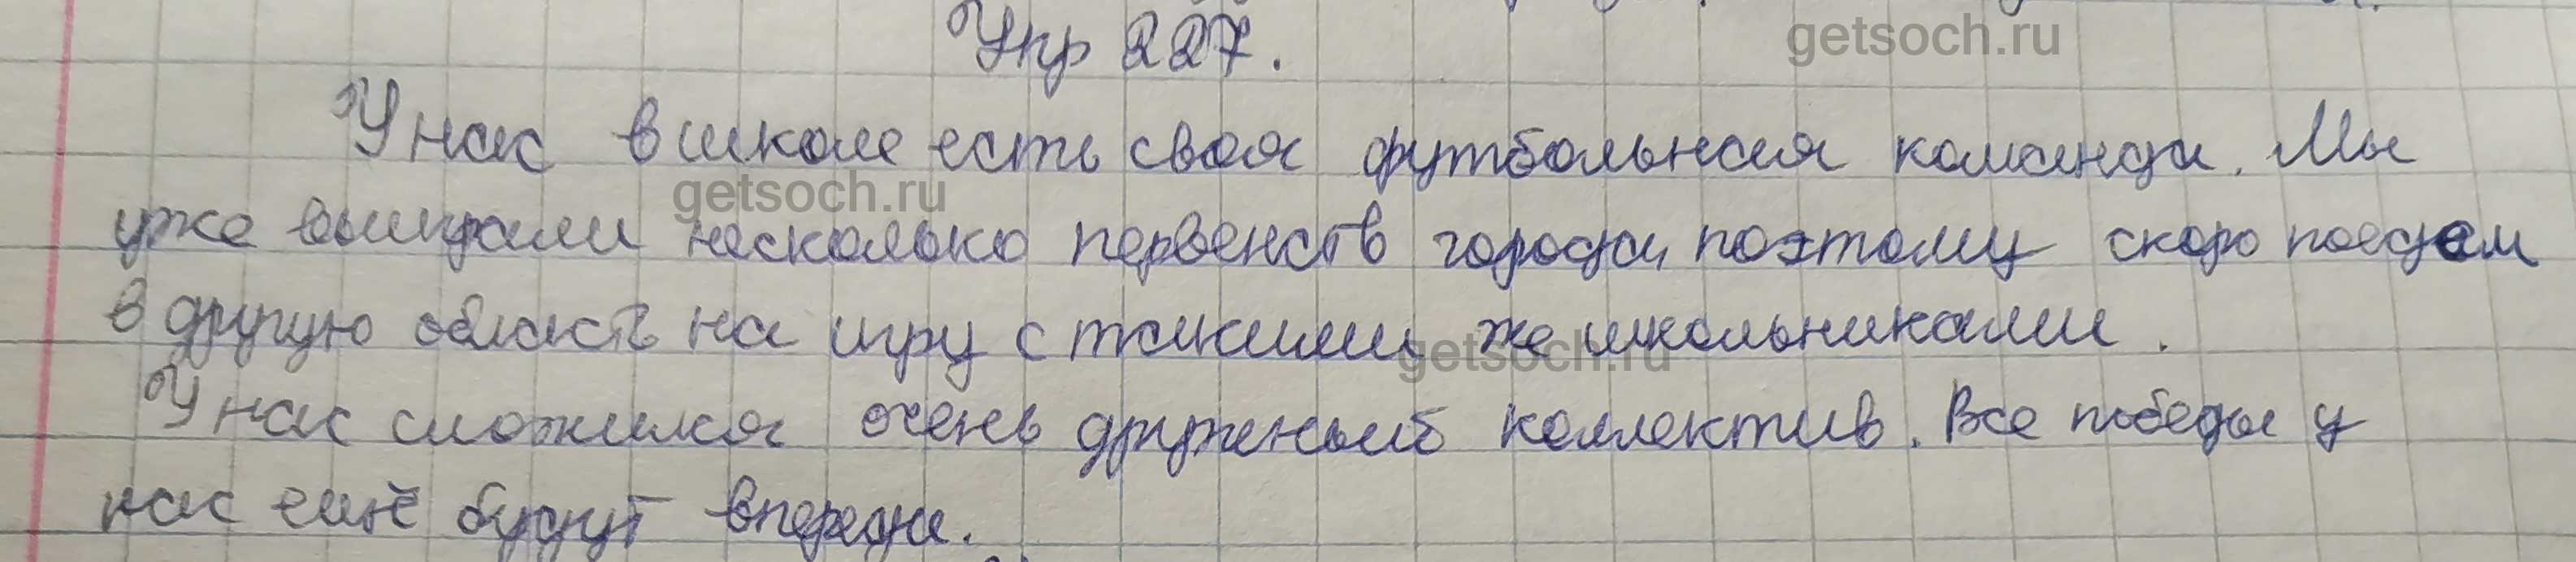 Упр 227.
getsoch.ru
У нас в школе есть своя футбольная команда. Мы
getsoch.ru
уже выиграли несколько первенств города, поэтому скоро поедем
в другую область на игру с такими же школьниками.
getsoch.ru
У нас сложился очень дружный коллектив. Все победы у
нас ещё будут впереди.